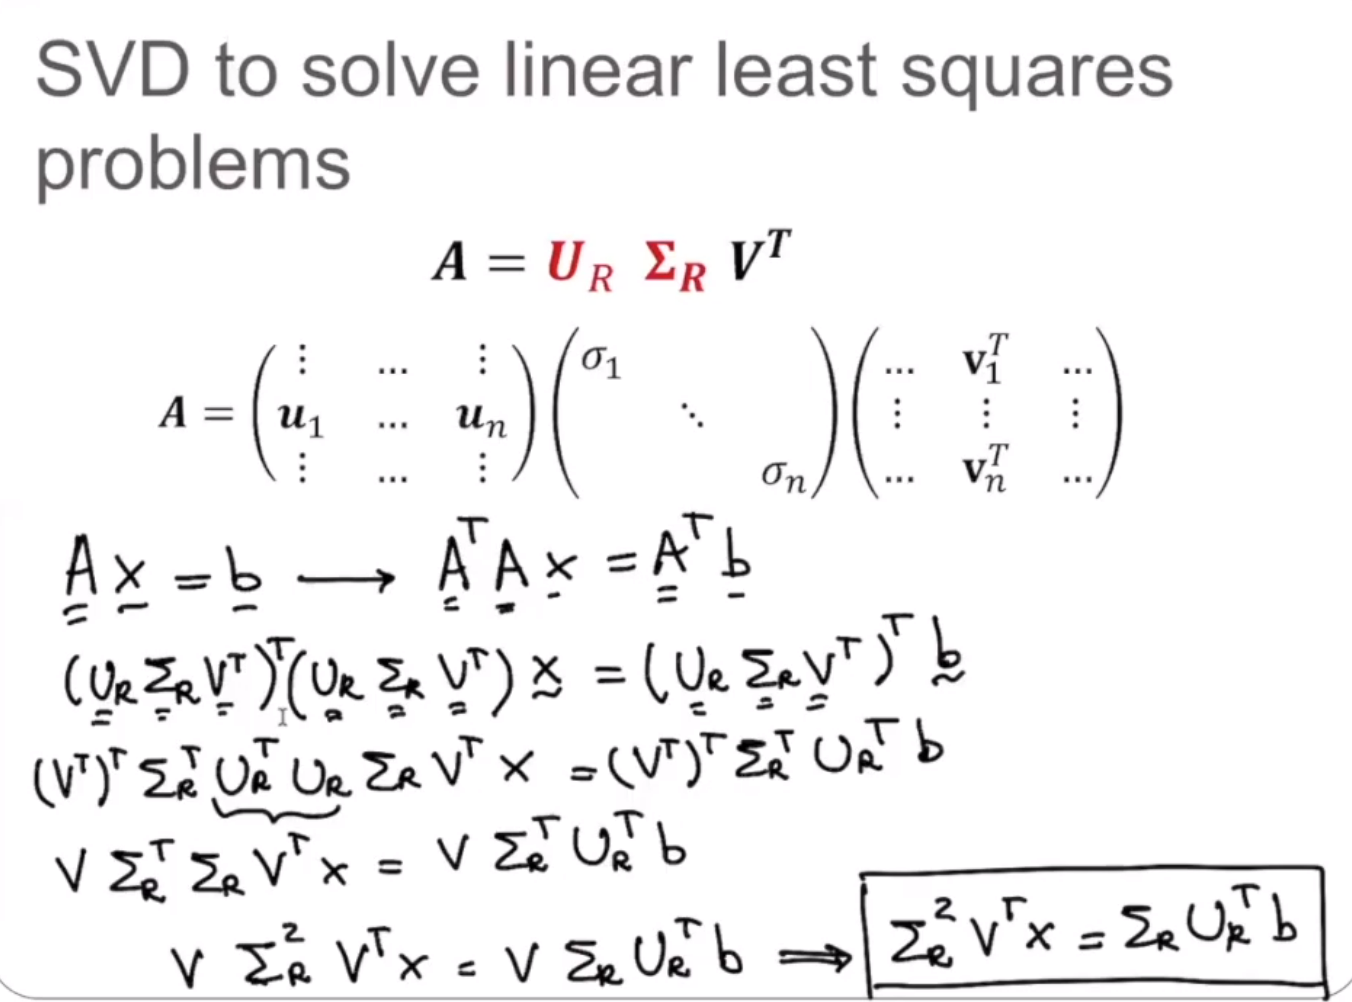 SVD to solve linear least squares
problems
A = U_R Σ_R V^T
A = (⋮ ... ⋮) (σ₁) (... v₁^T ...)
(u₁ ... uₙ) (⋱) (⋮ ⋮ ⋮)
(⋮ ... ⋮) (σₙ) (... vₙ^T ...)
A x = b ⟶ A^T A x = A^T b
(U_R Σ_R V^T)^T (U_R Σ_R V^T) x = (U_R Σ_R V^T)^T b
(V^T)^T Σ_R^T U_R^T U_R Σ_R V^T x = (V^T)^T Σ_R^T U_R^T b
V Σ_R^T Σ_R V^T x = V Σ_R^T U_R^T b
V Σ_R^2 V^T x = V Σ_R U_R^T b ⟹ Σ_R^2 V^T x = Σ_R U_R^T b